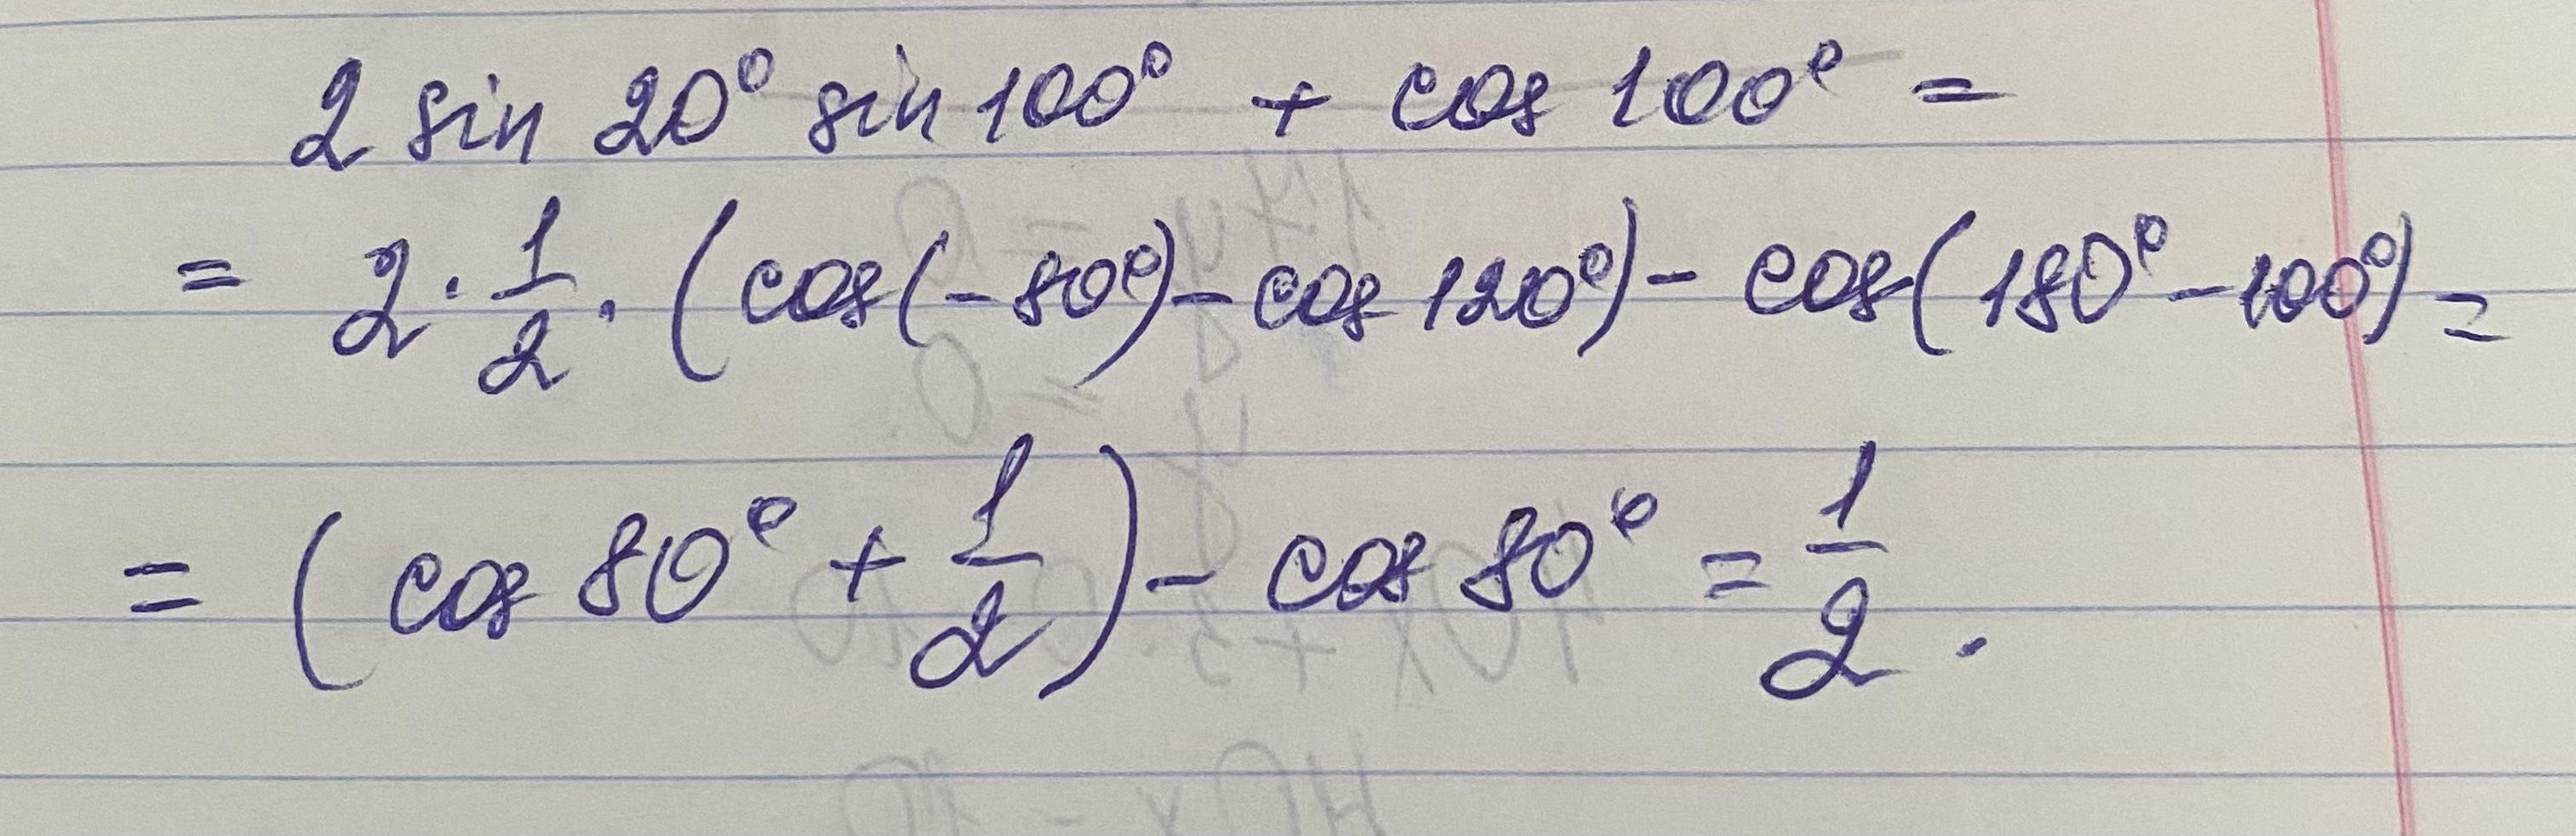 2 sin 20° sin 100° + cos 100° =
= 2 · 1/2 · (cos(-80°) - cos 120°) - cos(180° - 100°) =
= (cos 80° + 1/2) - cos 80° = 1/2 .